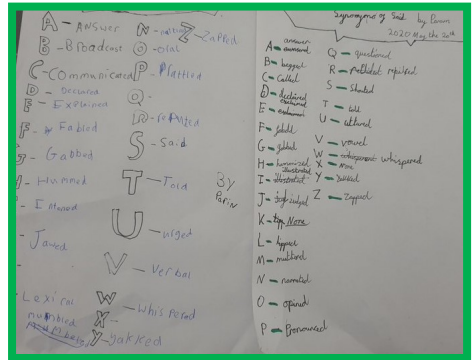 A - ANSWER
B - Broadcast
C - Communicated
D - Declared
E - Explained
F - Fabled
G - Gabbed
H - Hummed
I
Jawed
Lexical
numbled
N
O - Oral
P - Prattled
Q -
R - repeated
S - Said
T - Told
U - urged
V - Verbal
W - Whispered
X -
Y - yakked
Z - Zapped
By
Synonyms of Said by
2020 May the 20th
answer
A
B - begged
C - Called
D - declared
E - explained
F
G - gabbed
H
I - illustrated
J - judged
K - None
L - lipped
M - muttered
N - narrated
O - opined
P - Pronounced
Q - questioned
R - replied
S - Shouted
T - told
U - uttered
V - vowel
W - whispered
X - None
Y - Yakked
Z - Zapped